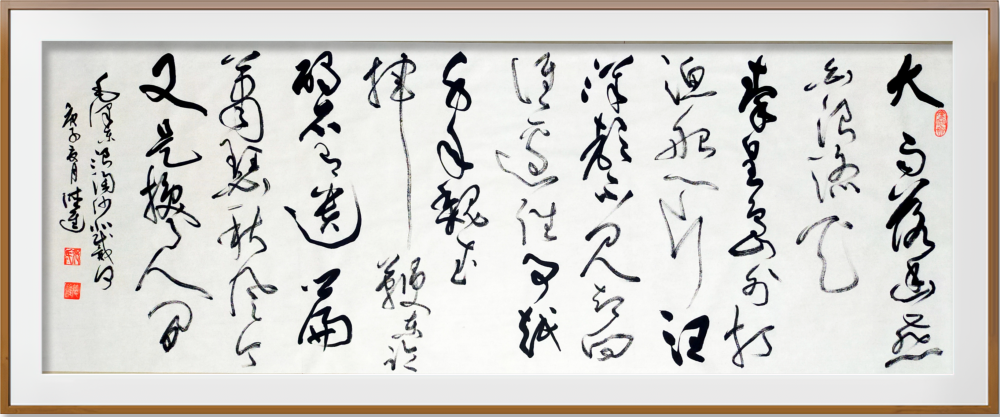 大雨落幽燕
白浪滔天
秦皇岛外打
渔船一片汪
洋都不见知向
谁边往事越
千年魏武
挥鞭东临
碣石有遗篇
萧瑟秋风今
又是换了人间
毛泽东浪淘沙北戴河
庚子夏月